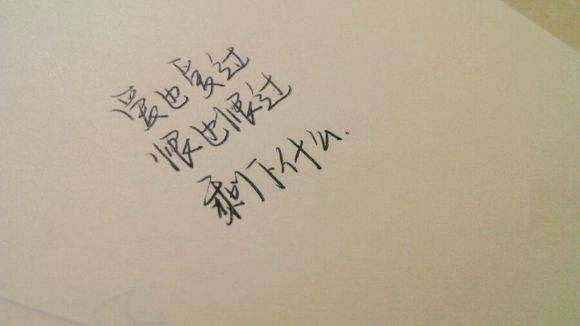 爱也爱过
恨也恨过
剩下什么.